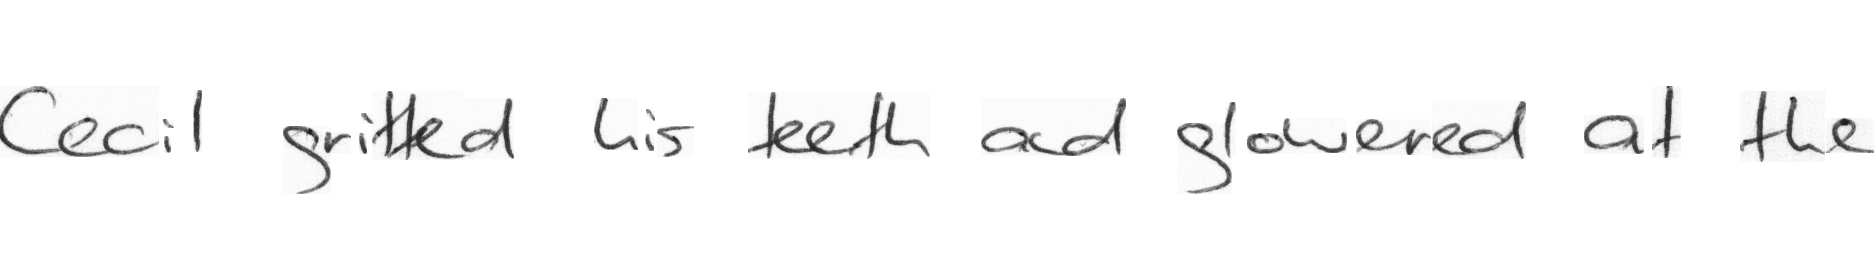 Cecil gritted his teeth and glowered at the